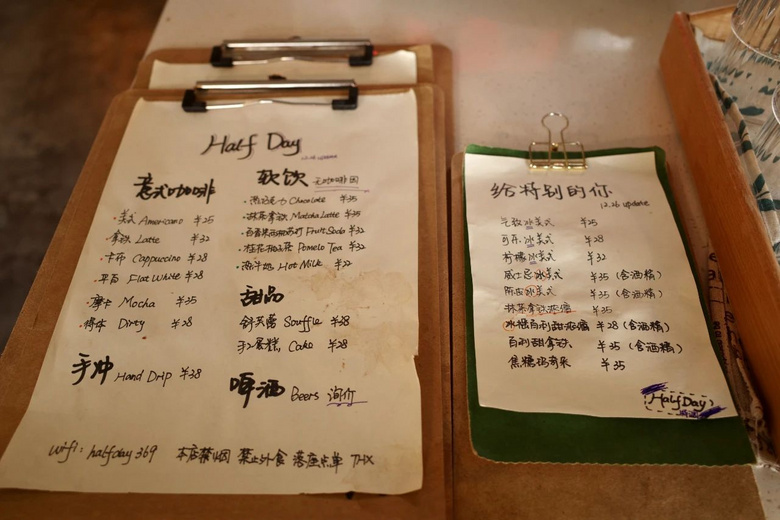 Half Day
意式咖啡
美式 Americano ¥25
拿铁 Latte ¥32
卡布 Cappuccino ¥28
平白 Flat White ¥28
摩卡 Mocha ¥35
Dirty ¥28
手冲 Hand Drip ¥38
软饮 无咖啡因
Chocolate ¥35
抹茶拿铁 Matcha Latte ¥35
Fruit Soda ¥32
桂花柚子茶 Pomelo Tea ¥32
热牛奶 Hot Milk ¥22
甜品
舒芙蕾 Souffle ¥28
手工蛋糕 Cake ¥28
啤酒 Beers 询价
wifi: halfday369 本店禁烟 禁止外食 落座点单 THX
给特别的你
12.26 update
气致冰美式 ¥25
可乐冰美式 ¥28
柠檬冰美式 ¥32
威士忌冰美式 ¥35 (含酒精)
冰美式 ¥35 (含酒精)
抹茶拿铁 ¥35
百利甜 ¥28 (含酒精)
百利甜拿铁 ¥35 (含酒精)
焦糖玛奇朵 ¥35
Half Day